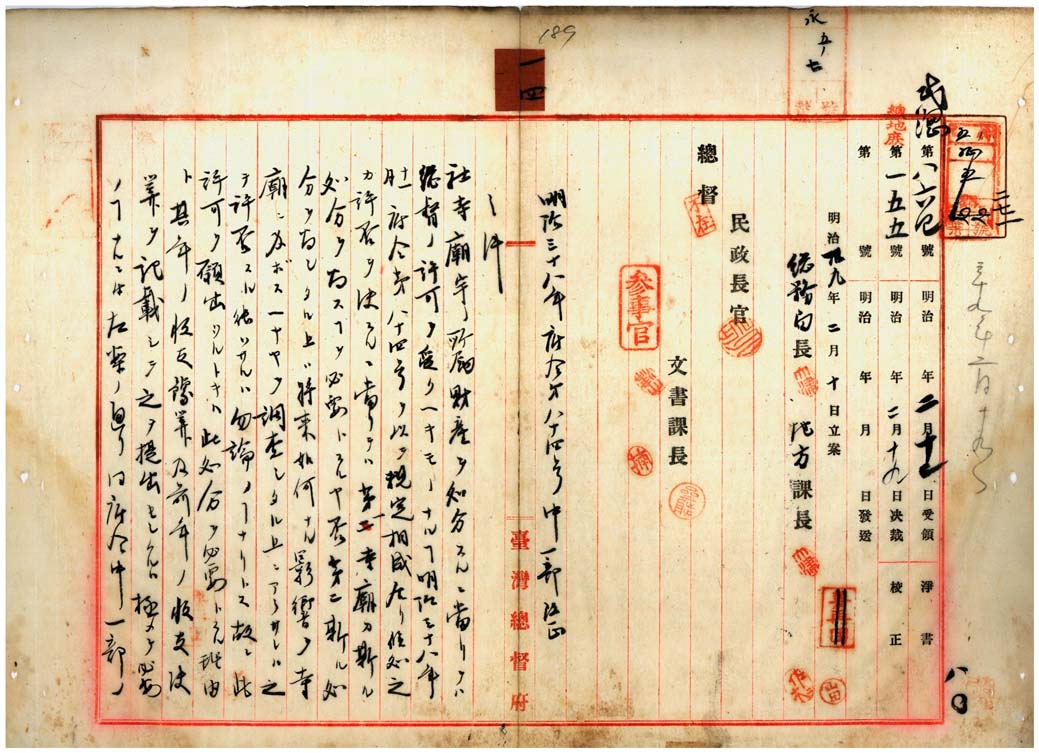 189
一四
永五ノ七
總地庶
第八六七號 明治 年二月十七日受領 淨書
第一五五號 明治 年二月十九日决裁 校正
第 號 明治 年 月 日發送
明治卅九年二月十日立案
總務局長 地方課長
總督
不在
民政長官
參事官
文書課長
明治三十八年府令第八十四号中一部改正
ノ件
臺灣總督府
社寺廟宇所屬財産ヲ處分スルニ當リテハ
總督ノ許可ヲ受クヘキモノナルコト明治三十八年
十一月府令第八十四号ヲ以テ規定相成居リ候處之
カ許否ヲ決スルニ當リテハ第一寺廟カ斯ル
處分ヲ為スコトヲ必要トスルヤ否第二斯ル處
分ヲ為シタル上ハ將来如何ナル影響ヲ寺
廟ニ及ボスヘキヤヲ調査シタル上ニアラサレハ之
ヲ許否スル能ハサルハ勿論ノコトナリトス故ニ此
許可ヲ願出ツルトキハ此處分ヲ必要トスル理由
ト其年ノ收支豫算及前年ノ收支決
算ヲ記載シテ之ヲ提出セシムルハ極メテ必要
ノコトナルニ付左案ノ通リ同府令中一部ノ